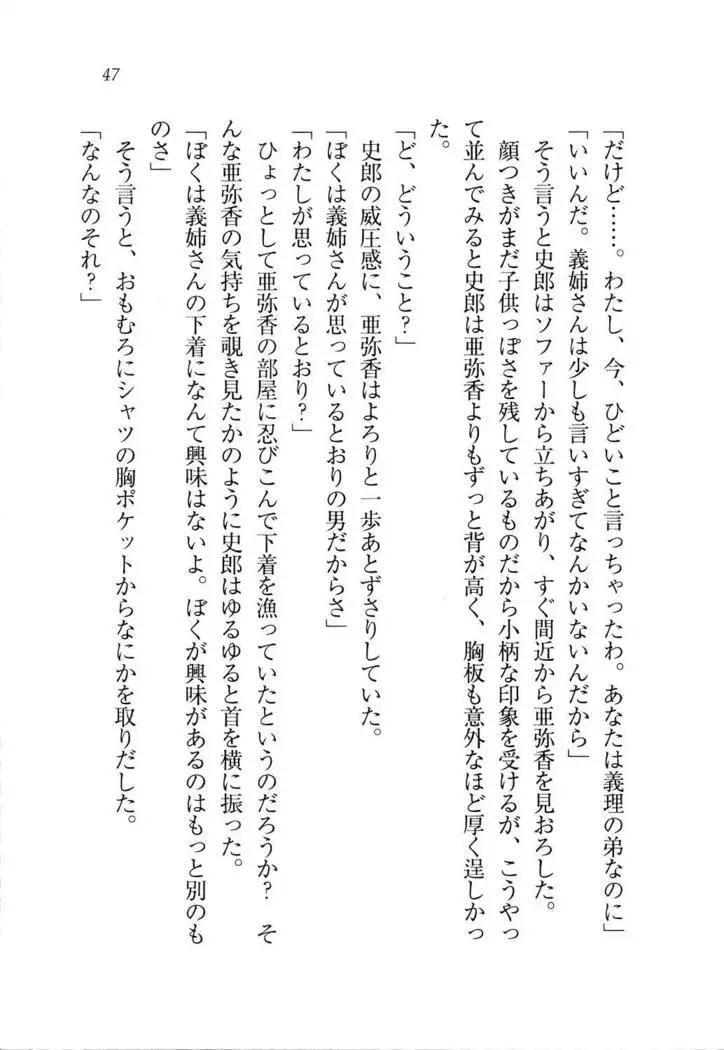 47
「だけど……。わたし、今、ひどいこと言っちゃったわ。あなたは義理の弟なのに」
「いいんだ。義姉さんは少しも言いすぎてなんかいないんだから」
そう言うと史郎はソファーから立ちあがり、すぐ間近から亜弥香を見おろした。
顔つきがまだ子供っぽさを残しているものだから小柄な印象を受けるが、こうやっ
て並んでみると史郎は亜弥香よりもずっと背が高く、胸板も意外なほど厚く逞しかっ
た。
「ど、どういうこと？」
史郎の威圧感に、亜弥香はよろりと一歩あとずさりしていた。
「ぼくは義姉さんが思っているとおりの男だからさ」
「わたしが思っているとおり？」
ひょっとして亜弥香の部屋に忍びこんで下着を漁っていたというのだろうか？　そ
んな亜弥香の気持ちを覗き見たかのように史郎はゆるゆると首を横に振った。
「ぼくは義姉さんの下着になんて興味はないよ。ぼくが興味があるのはもっと別のも
のさ」
そう言うと、おもむろにシャツの胸ポケットからなにかを取りだした。
「なんなのそれ？」